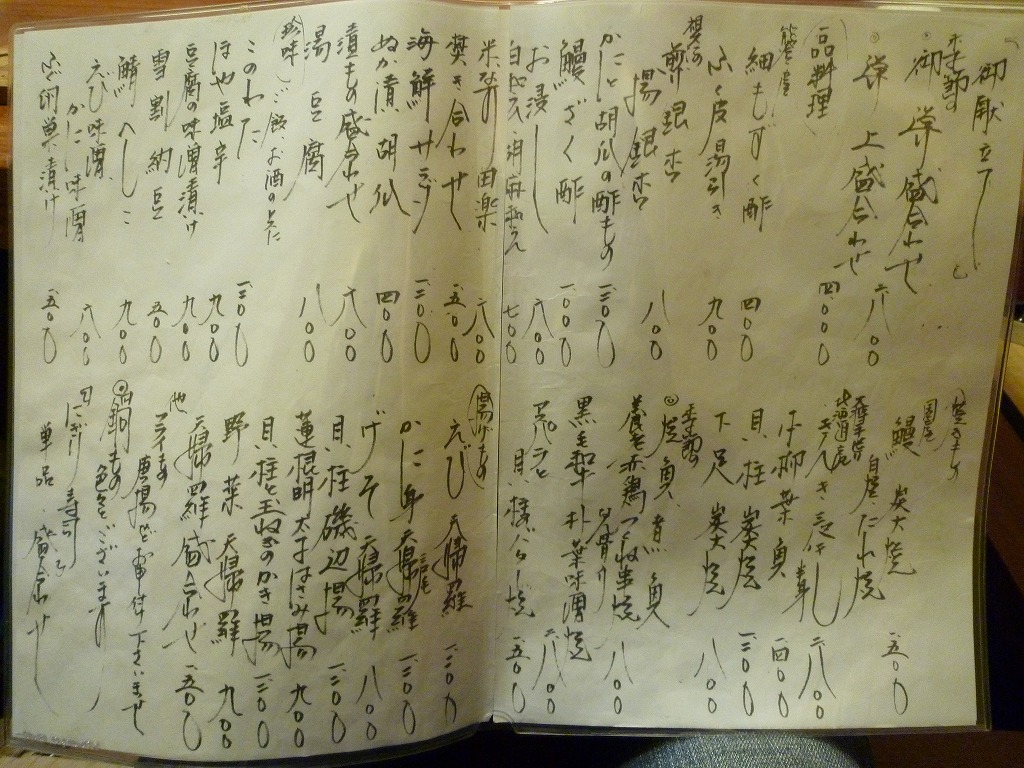 御献立
季節の
御造り盛合わせ 一八〇〇
御造り 上盛合わせ 四〇〇〇
一品料理
細もずく酢 四〇〇
ふく皮湯引き 九〇〇
煎り銀杏
揚げ銀杏 八〇〇
かにと胡瓜の酢もの 一二〇〇
鰻ざく酢 一〇〇〇
お浸し 八〇〇
胡麻和え 七〇〇
米茄子田楽 八〇〇
炊き合わせ 一五〇〇
海鮮サラダ 一二〇〇
ぬか漬胡瓜 四〇〇
漬もの盛合わせ 八〇〇
湯豆腐 八〇〇
珍味 ご飯、お酒の友に
このわた 一二〇〇
ほや塩辛 九〇〇
豆腐の味噌漬け 九〇〇
雪割納豆 五〇〇
鯖へしこ 九〇〇
えび味噌
かに味噌 八〇〇
ふぐ糠漬け 一五〇〇
焼きもの
鰻 炭火焼 一五〇〇
自家製だれ焼
北海道産
きんき 一八〇〇
干柳葉魚 一四〇〇
貝柱炭焼 一二〇〇
下足炭火焼 八〇〇
季節の
焼魚、煮魚
赤鶏つくね串焼 八〇〇
黒毛和牛朴葉味噌焼 一八〇〇
アスパラと
貝柱バター焼 一五〇〇
揚げもの
えび天婦羅 一二〇〇
かに身天婦羅 一二〇〇
げそ天婦羅 八〇〇
貝柱磯辺揚 一二〇〇
蓮根明太子はさみ揚 九〇〇
貝柱と玉ねぎのかき揚 一二〇〇
野菜天婦羅 九〇〇
天婦羅盛合わせ 一五〇〇
他
フライもの
唐揚など御申付下さいませ
鍋もの
色々ございます
にぎり寿司
単品、盛合わせ